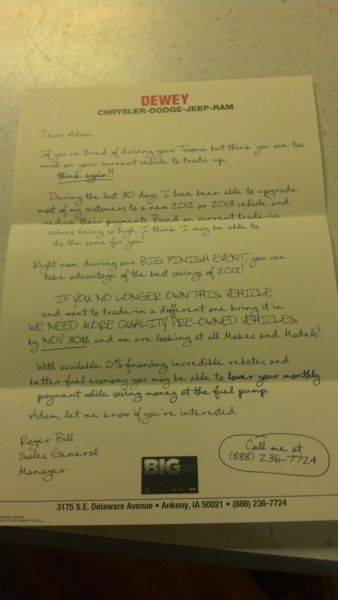 DEWEY
CHRYSLER-DODGE-JEEP-RAM
Dear Adam,
If you're tired of driving your Tacoma, but think you owe too
much on your current vehicle to trade up,
think again!!
During the last 30 days, I have been able to upgrade
most of my customers to a new 2012 or 2013 vehicle and
reduce their payments. Based on current trade-in
values being so high, I think I may be able to
do the same for you!
Right now, during our BIG FINISH EVENT, you can
take advantage of the best savings of 2012!
IF YOU NO LONGER OWN THIS VEHICLE
and want to trade-in a different one bring it in.
WE NEED MORE QUALITY PRE-OWNED VEHICLES
by NOV 30th and we are looking at all Makes and Models!
With available 0% financing, incredible rebates, and
better fuel economy you may be able to lower your monthly
payment while saving money at the fuel pump.
Adam, let me know if you're interested.
Roger Bill
Sales General
Manager
BIG
Call me at
(888) 236-7724
3175 S.E. Delaware Avenue • Ankeny, IA 50021 • (888) 236-7724